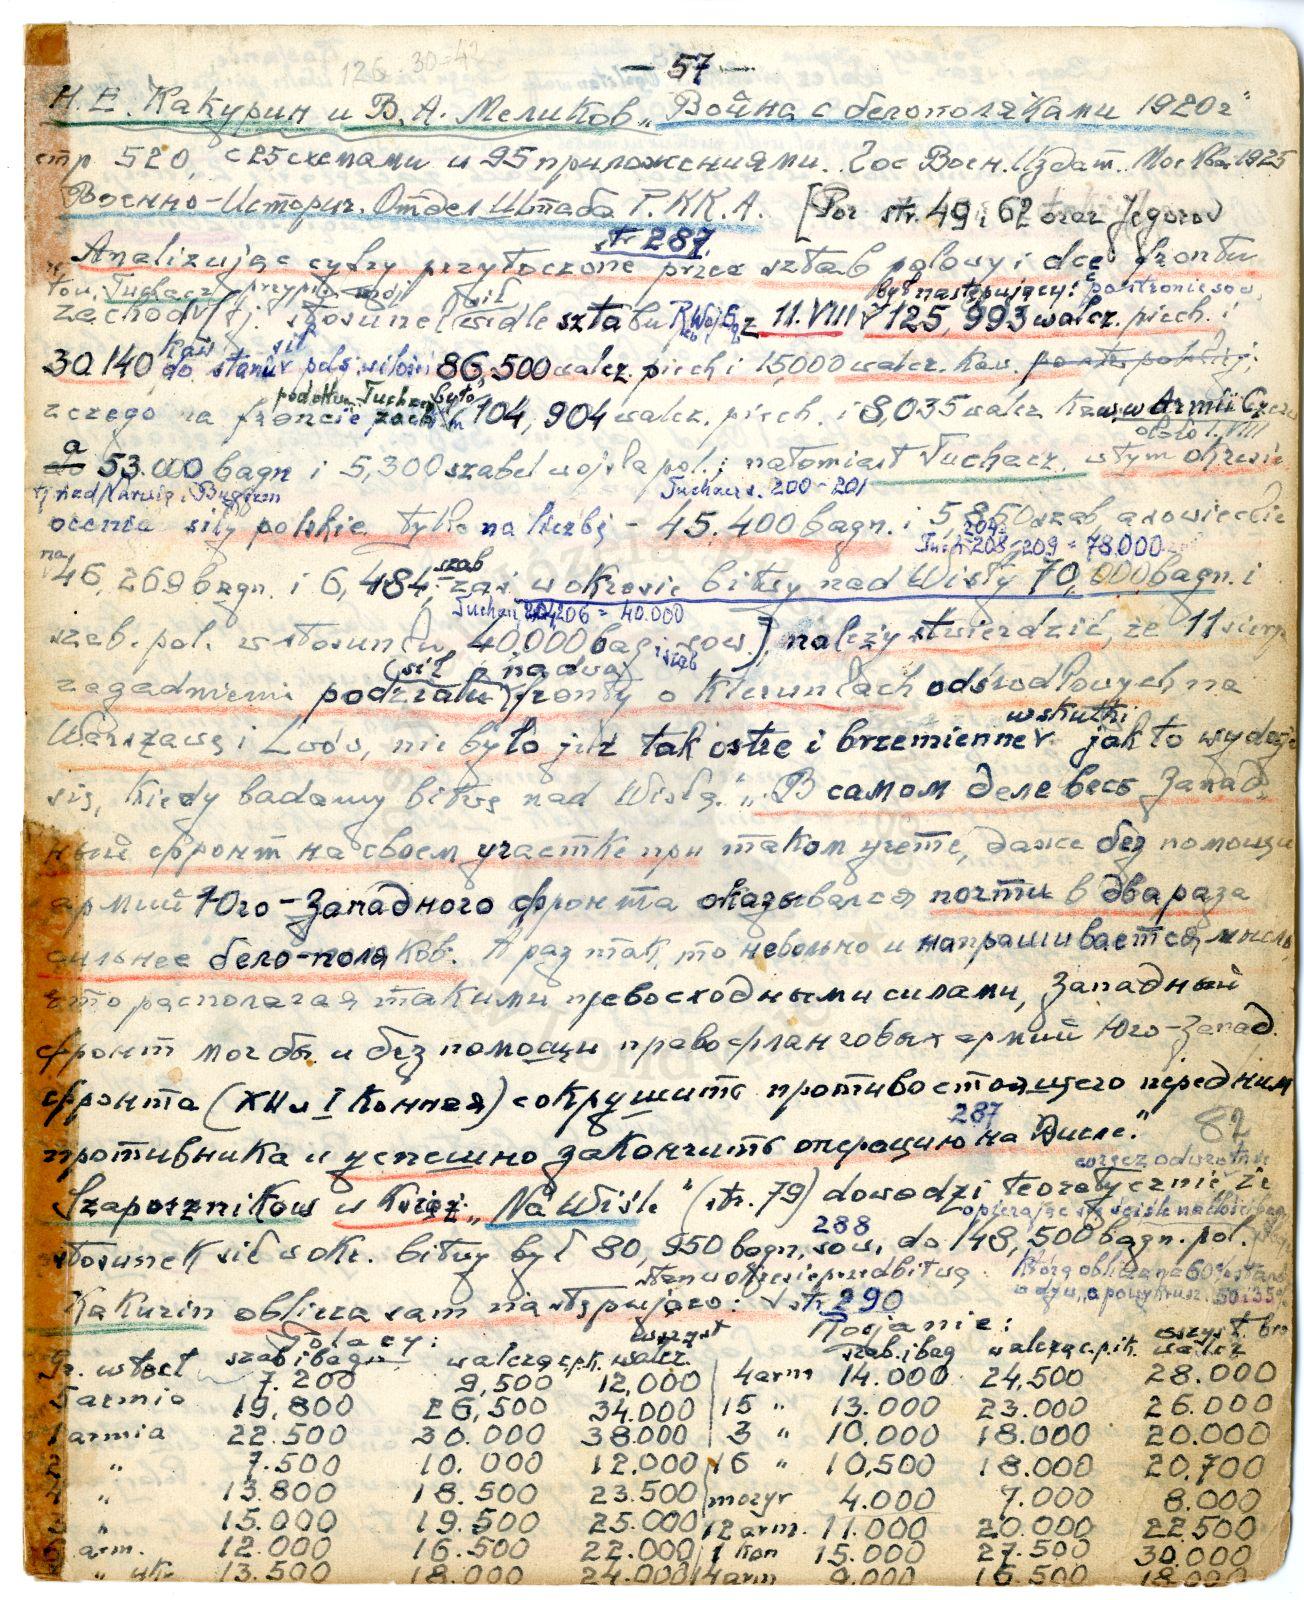 — 57 —
126 30-42
Н. Е. Какурин и В. А. Меликов „Война с белополяками 1920 г"
стр 520, с 25 схемами и 95 приложениями. Гос Воен. Издат. Москва 1925
Военно-Историч. Отдел Штаба Р.К.К.А. [Por str. 49 i 62 oraz Jegorov
str 287
Analizując cyfry przytoczone przez sztab polowy i dcę frontu
tow. Tuchacz sił był następujący: po stronie sow.
zachod (tj. stosunek wedle sztabu z 11.VIII 125,993 walcz. piech. i
30.140 kaw do stanów pols. sił w ilości 86,500 walcz. piech i 15,000 walcz. kaw. po str. polskiej;
podług Tuchacz było
z czego na froncie zach 104,904 walcz. piech. i 8,035 walcz kaw w Armii Czerw
około 1.VIII
a 53.000 bagn i 5,300 szabel wojska pol.; natomiast Tuchacz. w tym okresie
tj nad Narwią i Bugiem Tuchacz. 200-201
ocenia siły polskie tylko na liczbę - 45.400 bagn. i 5,860 szab, a sowieckie
Tuch 208-209 = 78.000
na 46,269 bagn. i 6,484 szab zaś w okresie bitwy nad Wisłą 70,000 bagn. i
Tuchacz 206 = 40.000
szab. pol. w stosunku 40000 bag i szab sow.), należy stwierdzić, że 11 sierp
(sił na dwa)
zagadnienie podziału fronty o kierunkach odśrodkowych na
wskutki
Warszawę i Lwów, nie było już tak ostre i brzemienne jak to wydaje
się, kiedy badamy bitwę nad Wisłą. „В самом деле весь Запад-
ный фронт на своем участке при таком учете, даже без помощи
армий Юго-Западного фронта оказывался почти в два раза
сильнее бело-поляков. А раз так, то невольно и напрашивается мысль,
что располагая такими превосходными силами, Западный
фронт мог бы и без помощи правофланговых армий Юго-Запад.
фронта (XII и I Конная) сокрушить противостоящего перед ним
287
противника и успешно закончить операцию на Висле." 82
wręcz odwrotnie
Szaposznikow w książ. „Na Wiśle" (str. 79) dowodzi teoretycznie że
opierając się ściśle na liczbie bag
288
stosunek sił w okr. bitwy był 80,950 bagn. sow. do 148,500 bagn. pol.
stan w okresie przed bitwą którą oblicza na 60% stanu
Kakurin oblicza sam następująco: str 290
Polacy: Rosjanie:
szab i bagn walcząc pik. wszyst walcz. szab. i bag walcząc. pik. wszyst. bro walcz
Gr. włocł 7.200 9,500 12,000 4 arm 14.000 24,500 28.000
5 armia 19,800 26,500 34.000 15 „ 13.000 23.000 26.000
1 armia 22.500 30.000 38.000 3 „ 10,000 18.000 20.000
2 „ 7.500 10.000 12.000 16 „ 10,500 18.000 20,700
4 „ 13.800 18.500 23.500 mozyr 4.000 7.000 8.000
3 „ 15.000 19.500 25.000 12 arm. 11.000 20.000 22.500
6 arm. 12.000 16.500 22.000 1 kon 15.000 27.500 30.000
„ ukr 13.500 18.000 24.000 14 arm 9.000 16.500 18.000